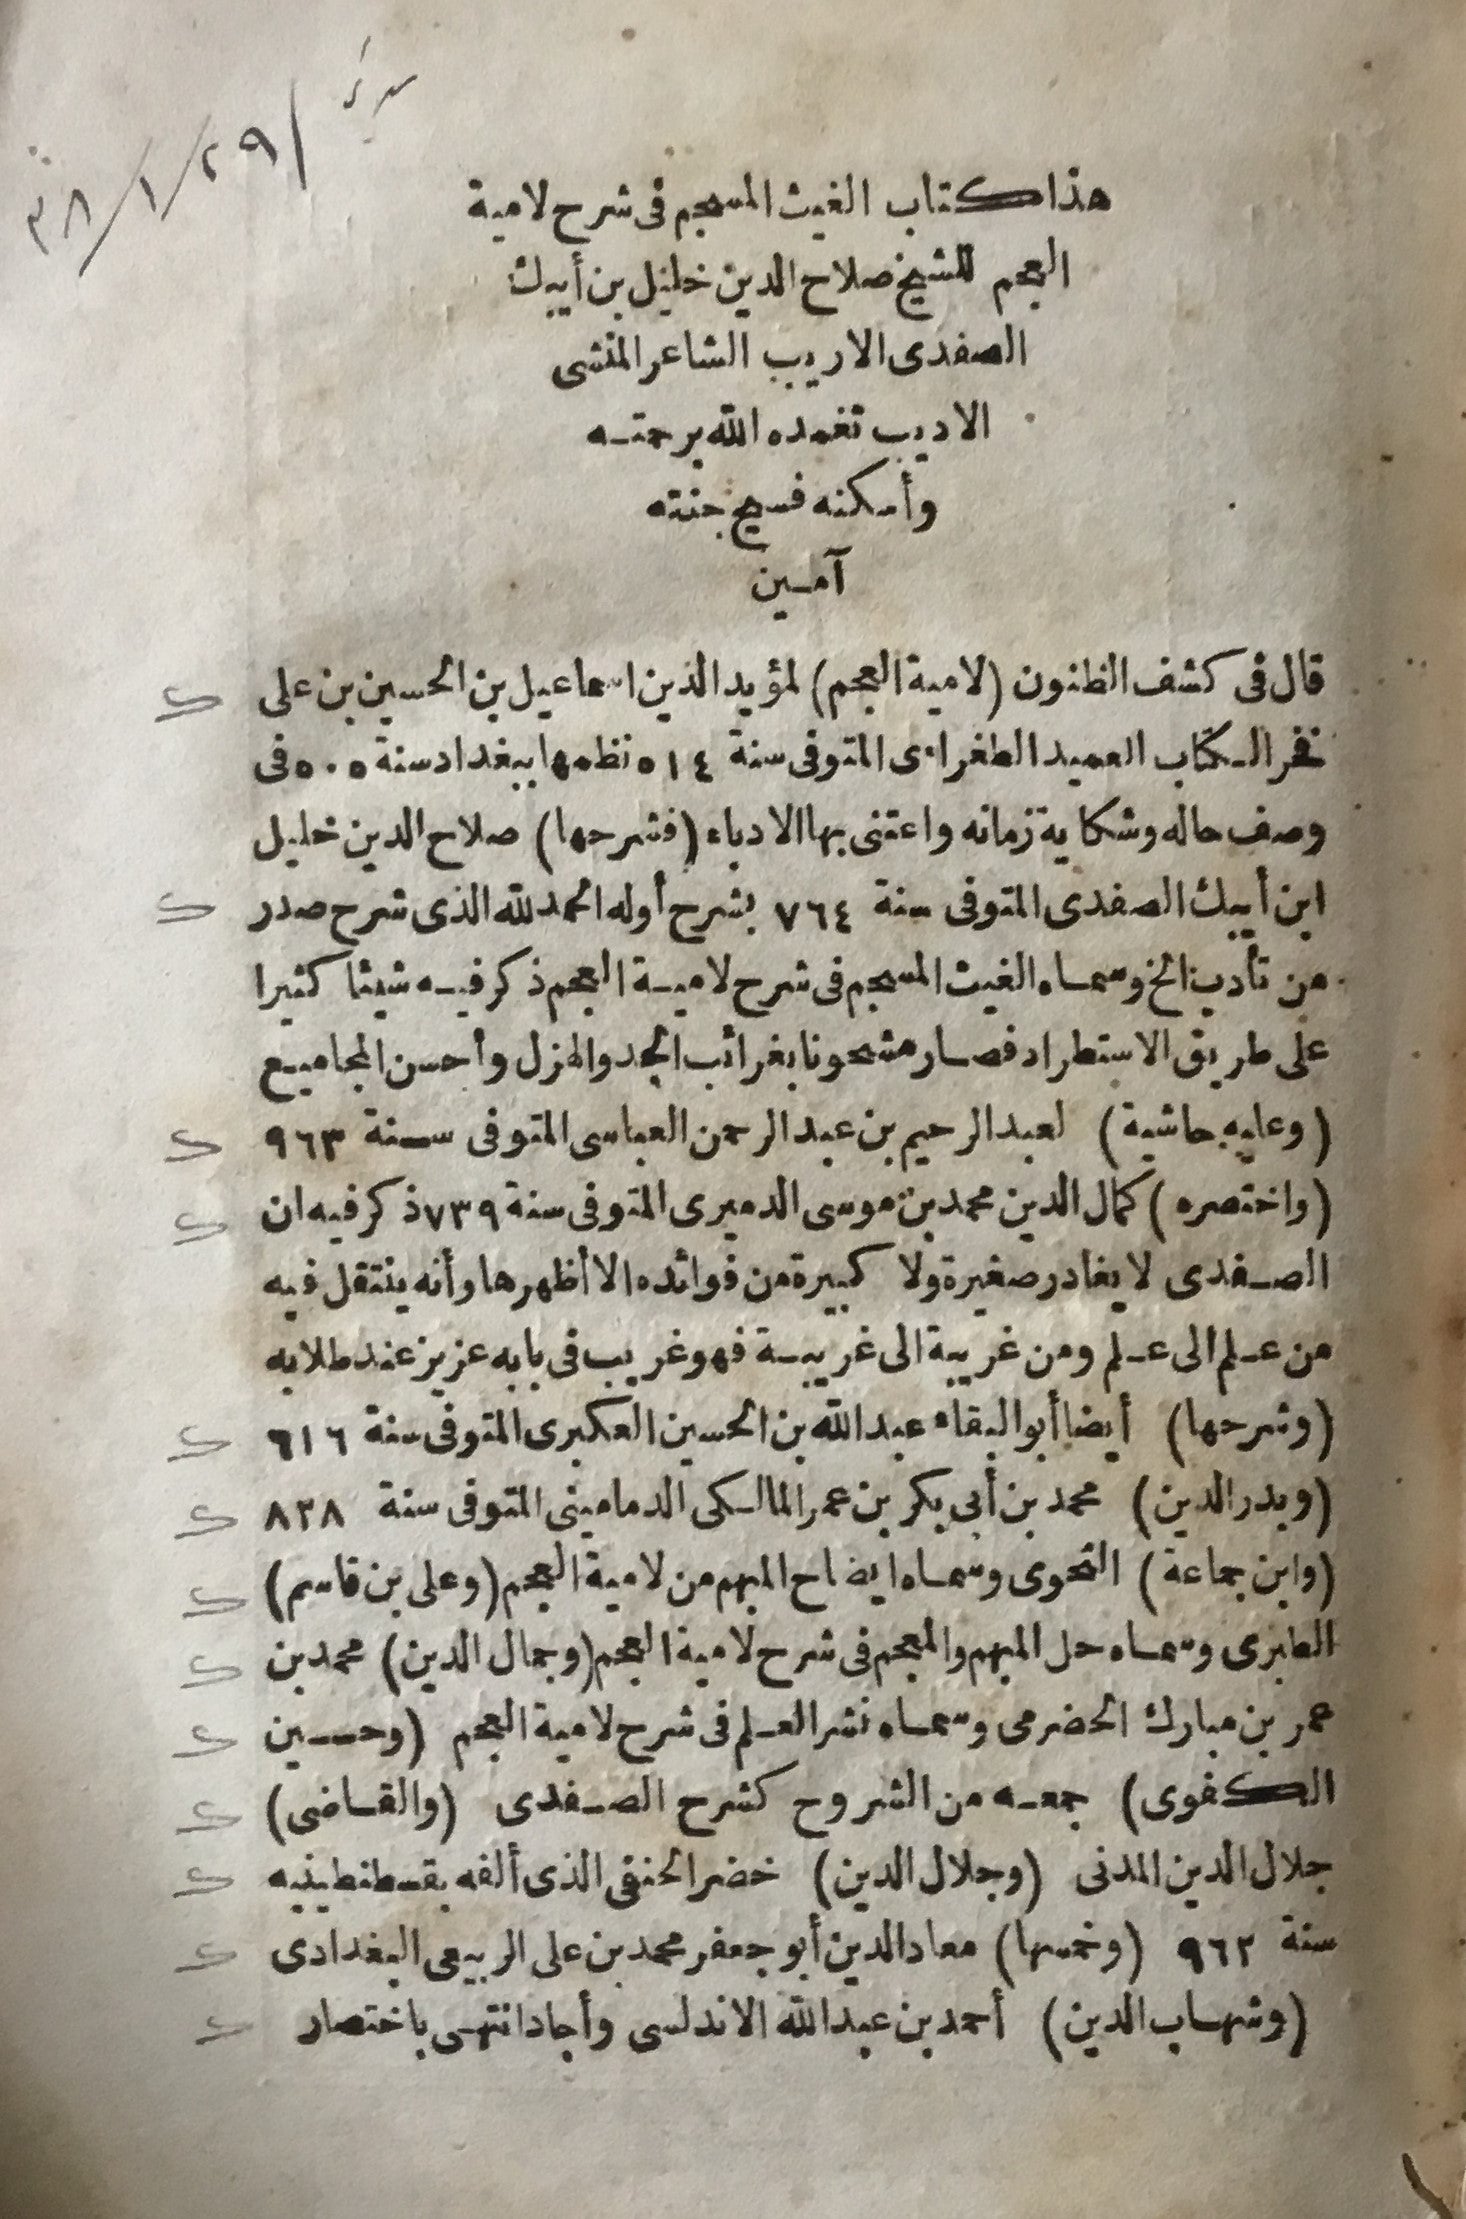 ٣٨/١/٢٩
هذا كتاب الغيث المسجم فى شرح لامية
العجم للشيخ صلاح الدين خليل بن أيبك
الصفدى الاريب الشاعر المنشى
الاديب تغمده الله برحمته
وأسكنه فسيح جنته
آمين
قال فى كشف الظنون (لامية العجم) لمؤيد الدين اسماعيل بن الحسين بن على
فخر الكتاب العميد الطغراى المتوفى سنة ٥١٤ نظمها ببغداد سنة ٥٠٥ فى
وصف حاله وشكاية زمانه واعتنى بها الادباء (فشرحها) صلاح الدين خليل
ابن أيبك الصفدى المتوفى سنة ٧٦٤ بشرح أوله الحمد لله الذى شرح صدر
من تأدب الخ وسماه الغيث المسجم فى شرح لامية العجم ذكر فيه شيئا كثيرا
على طريق الاستطراد فصار مشحونا بغرائب الجد والهزل وأحسن المجاميع
(وعليه حاشية) لعبد الرحيم بن عبد الرحمن العباسى المتوفى سنة ٩٦٣
(واختصره) كمال الدين محمد بن موسى الدميرى المتوفى سنة ٧٣٩ ذكر فيه ان
الصفدى لا يغادر صغيرة ولا كبيرة من فوائده الا أظهرها وأنه ينتقل فيه
من علم الى علم ومن غريبة الى غريبة فهو غريب فى بابه عزيز عند طلابه
(وشرحها) أيضا أبو البقاء عبد الله بن الحسين العكبرى المتوفى سنة ٦١٦
(وبدر الدين) محمد بن أبى بكر بن عمر المالكى الدمامينى المتوفى سنة ٨٢٨
(وابن جماعة) النحوى وسماه ايضاح المبهم من لامية العجم (وعلى بن قاسم)
الطبرى وسماه حل المبهم والمعجم فى شرح لامية العجم (وجمال الدين) محمد بن
عمر بن مبارك الحضرمى وسماه نشر العلم فى شرح لامية العجم (وحسين
الكفوى) جمعه من الشروح كشرح الصفدى (والقاضى)
جلال الدين المدنى (وجلال الدين) خضر الحنفى الذى ألفه بقسطنطينيه
سنة ٩٦٢ (وخمسها) معاد الدين أبو جعفر محمد بن على الربيعى البغدادى
(وشهاب الدين) أحمد بن عبد الله الاندلسى وأجاد انتهى باختصار